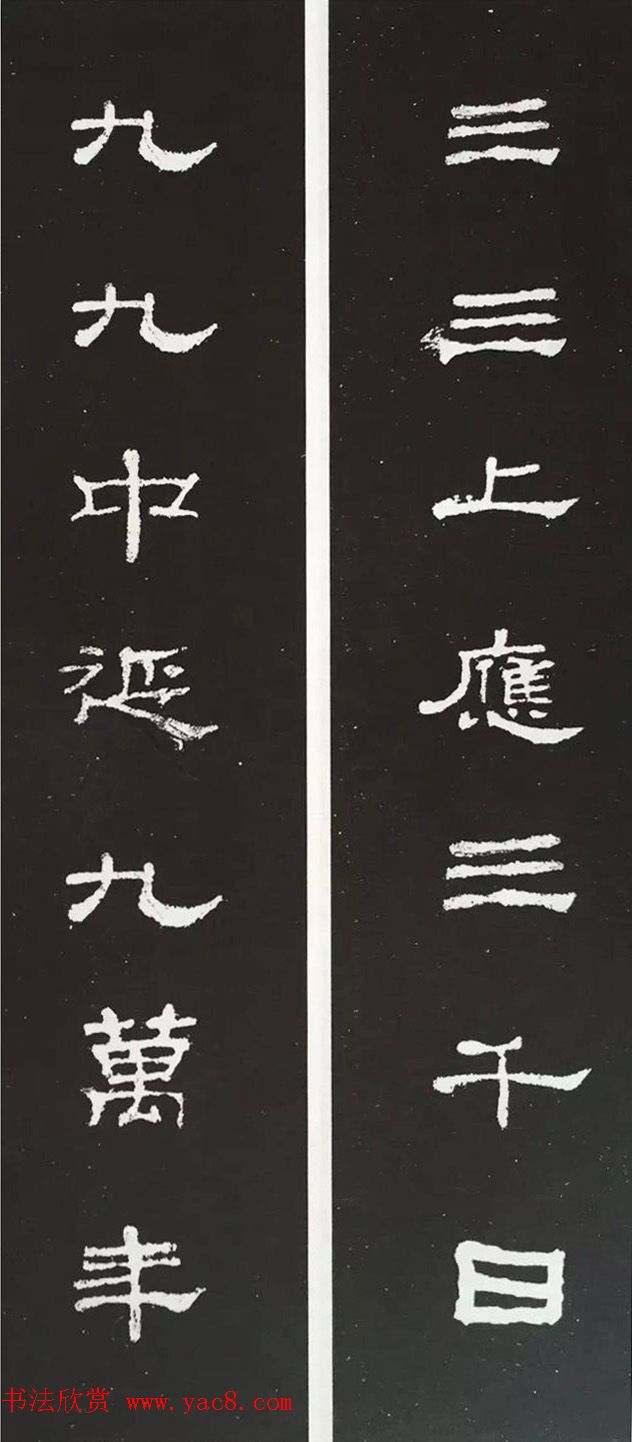 三三上應三千日
九九中延九萬年
书法欣赏 www.yac8.com